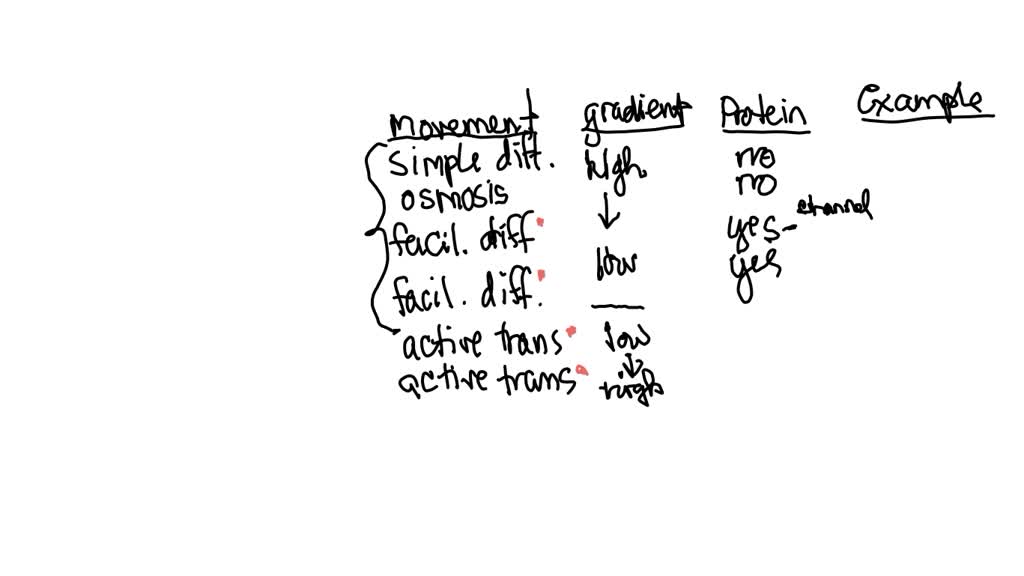 movement gradient Protein Example
simple diff. high no
osmosis ↓ no
facil. diff yes - channel
facil. diff. low yes
active trans low
active trans ↓ high